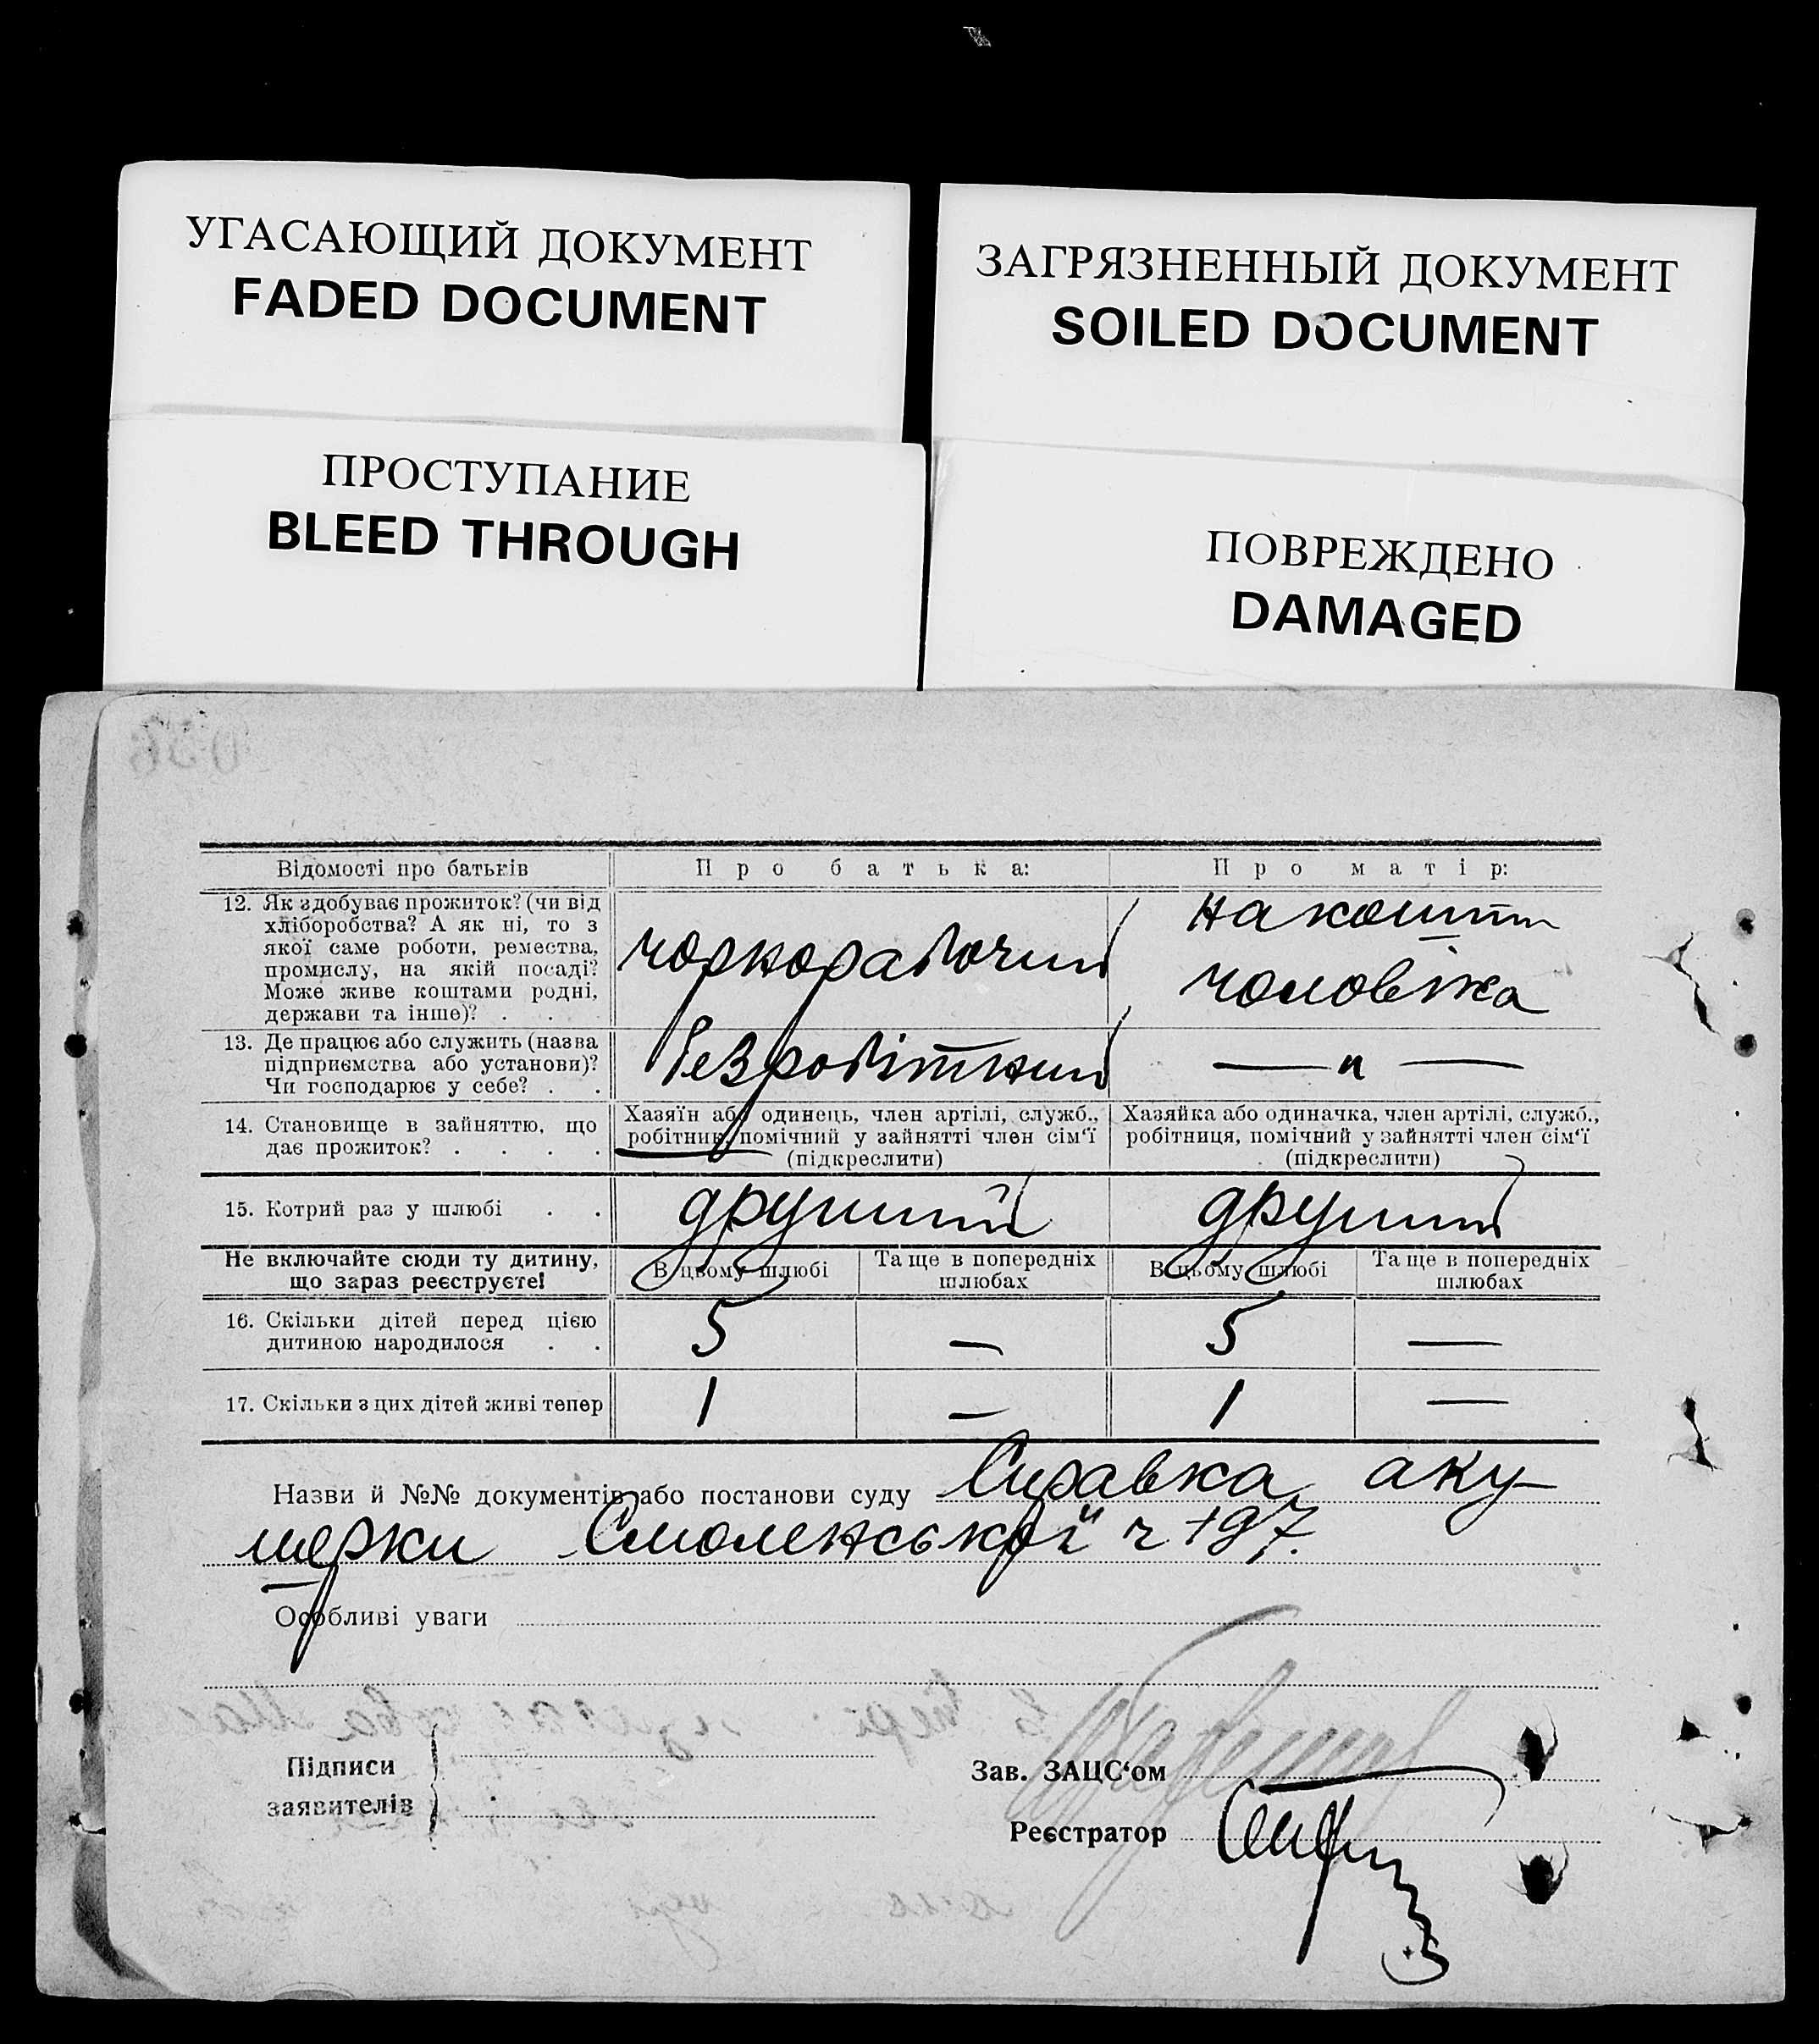 УГАСАЮЩИЙ ДОКУМЕНТ
FADED DOCUMENT
ЗАГРЯЗНЕННЫЙ ДОКУМЕНТ
SOILED DOCUMENT
ПРОСТУПАНИЕ
BLEED THROUGH
ПОВРЕЖДЕНО
DAMAGED
Відомості про батьків
Про батька:
Про матір:
12. Як здобуває прожиток? (чи від
хліборобства? А як ні, то з
якої саме роботи, ремества,
промислу, на якій посаді?
Може живе коштами родні,
держави та інше)? . .
чорноробочий
на кошти
чоловіка
13. Де працює або служить (назва
підприємства або установи)?
Чи господарює у себе? . .
безробітний
— " —
14. Становище в зайняттю, що
дає прожиток? . . . .
Хазяїн або одинець, член артілі, служб.,
робітник, помічний у зайнятті член сім'ї
(підкреслити)
Хазяйка або одиначка, член артілі, служб.,
робітниця, помічний у зайнятті член сім'ї
(підкреслити)
15. Котрий раз у шлюбі . .
другий
другий
Не включайте сюди ту дитину,
що зараз реєструєте!
В цьому шлюбі
Та ще в попередніх
шлюбах
В цьому шлюбі
Та ще в попередніх
шлюбах
16. Скільки дітей перед цією
дитиною народилося . .
5 — 5 —
17. Скільки з цих дітей живі тепер
1 — 1 —
Назви й №№ документів або постанови суду Справка аку-
шерки Смоленської ч 197.
Особливі уваги
Підписи
заявителів
Зав. ЗАЦС'ом
Реєстратор